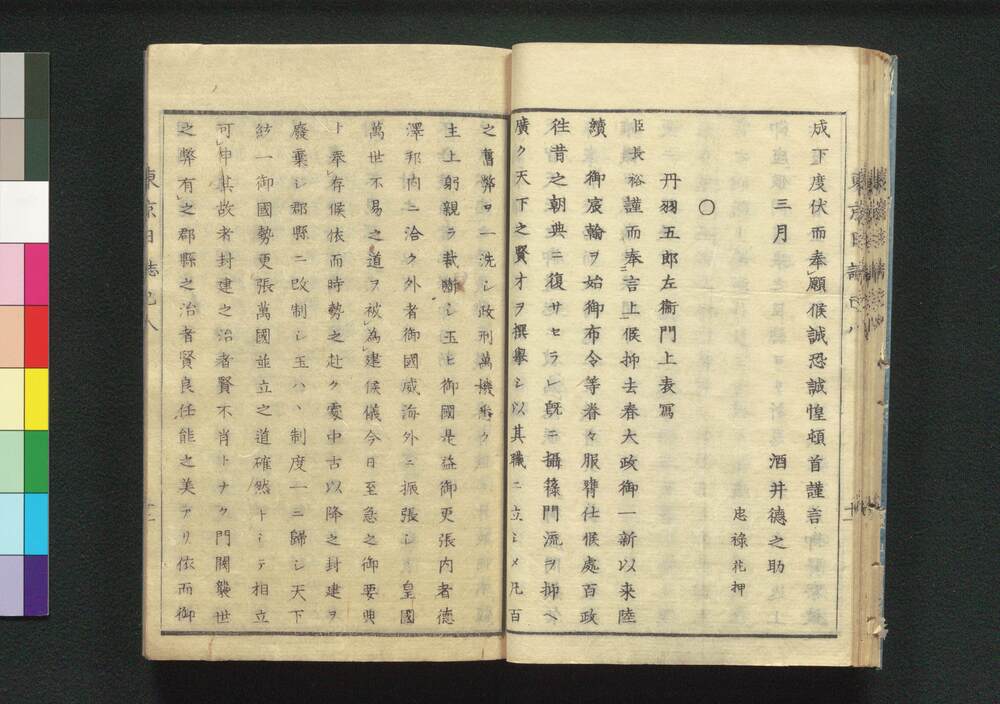 成下度伏而奉願候誠恐誠惶頓首謹言
酒井徳之助
三月
忠禄花押
〇
丹羽五郎左衞門上表寫
臣長裕謹而奉言上候抑去春大政御一新以来陸
續御宸翰ヲ始御布令等眷々服膺仕候處百政
往昔之朝典ニ復サセラレ既ニ攝籙門流ヲ抑ヘ
廣ク天下之賢才ヲ撰擧シ以其職ニ立シメ凡百
之舊弊ヲ一洗シ政刑萬機悉ク
主上躬親ラ裁斷シ玉ヒ御國是益御更張内者德
澤邦内ニ洽ク外者御國威海外ニ振張シ皇國
萬世不易之道ヲ被為建候儀今日至急之御要典
ト奉存候依而時勢之赴ク處中古以降之封建ヲ
廢棄シ郡縣ニ改制シ玉ハヽ制度一ニ歸シ天下
統一御國勢更張萬國並立之道確然トシテ相立
可申其故者封建之治者賢不肖トナク門閥襲世
之弊有之郡縣之治者賢良任能之美アリ依而御
東京日誌己八